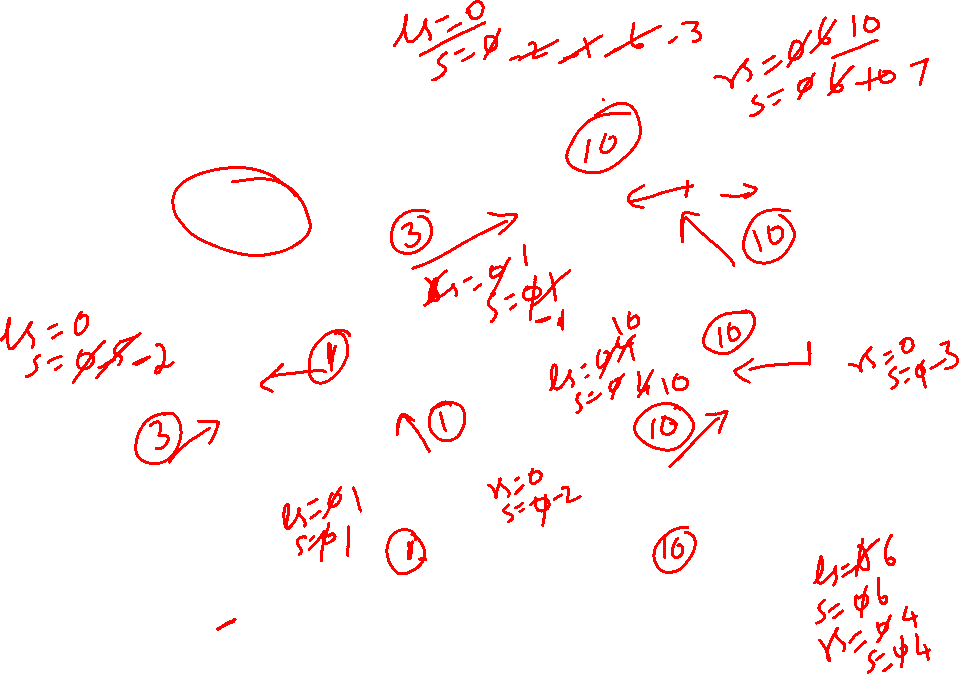 ls=0
s=0 -2 -1 -6 -3
rs=0 6 10
s=0 6 +0 7
10
3
10
ls=0 1
s=0 1
-1
ls=0
s=0 -5 -2
1
10
10
ls=0 4
s=0 6 10
rs=0
s=0 -3
3
1
10
rs=0
s=0 -2
ls=0 1
s=0 1
1
10
ls=0 6
s=0 6
rs=0 4
s=0 4